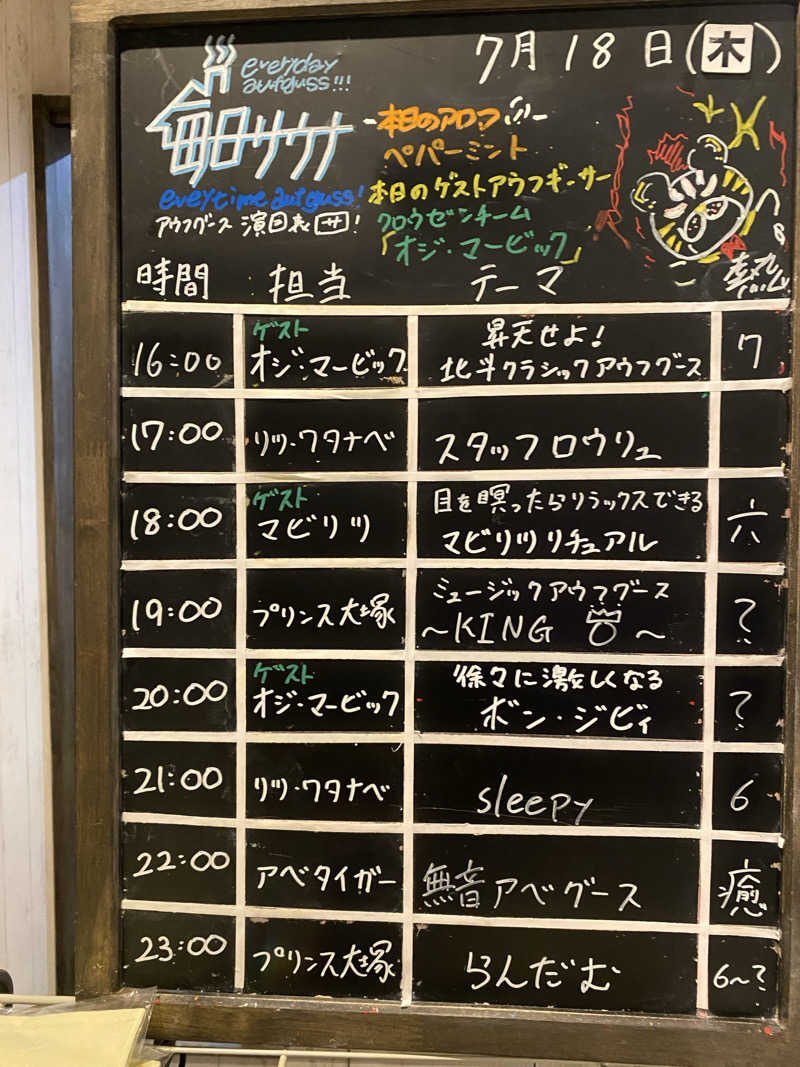 7月18日(木)
everyday
aufguss!!!
毎日サウナ
-本日のアロマ-
ペパーミント
eveytime autguss!
本日のゲストアウフギーサー
アウフグース 演目表 サ!
クロウゼンチーム
「オジ・マービック」
時間 担当 テーマ 熱
16:00 ゲスト オジ・マービック 昇天せよ! 北斗クラシックアウフグース 7
17:00 リツ・ワタナベ スタッフロウリュ
18:00 ゲスト マビリツ 目を瞑ったらリラックスできる マビリツリチュアル 六
19:00 プリンス大塚 ミュージックアウフグース ～KING ～ ?
20:00 ゲスト オジ・マービック 徐々に激しくなる ボン・ジビィ ?
21:00 リツ・ワタナベ sleepy 6
22:00 アベタイガー 無音アベグース 癒
23:00 プリンス大塚 らんだむ 6～?